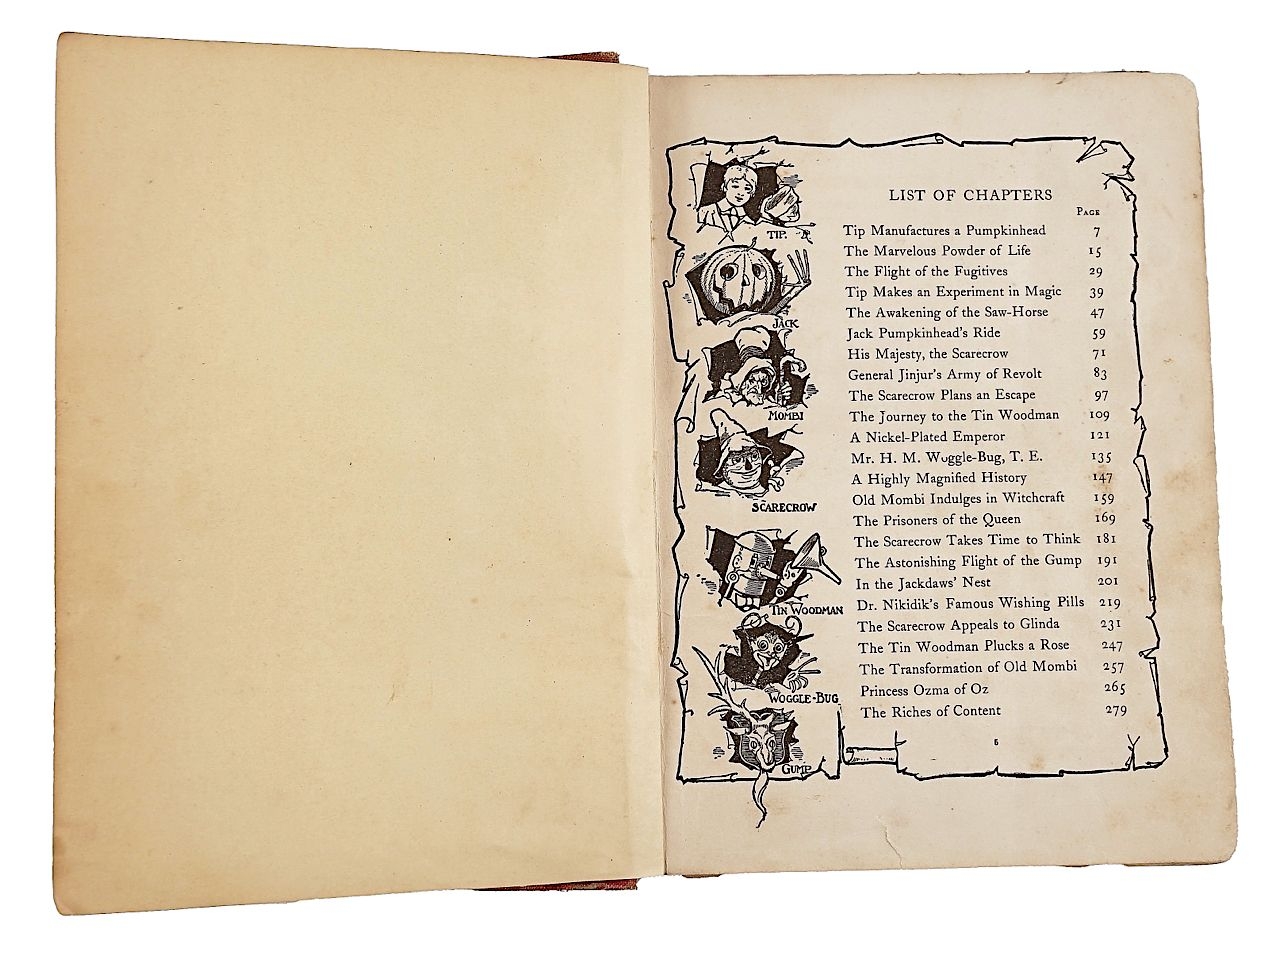 LIST OF CHAPTERS
PAGE
Tip Manufactures a Pumpkinhead 7
The Marvelous Powder of Life 15
The Flight of the Fugitives 29
Tip Makes an Experiment in Magic 39
The Awakening of the Saw-Horse 47
Jack Pumpkinhead's Ride 59
His Majesty, the Scarecrow 71
General Jinjur's Army of Revolt 83
The Scarecrow Plans an Escape 97
The Journey to the Tin Woodman 109
A Nickel-Plated Emperor 121
Mr. H. M. Woggle-Bug, T. E. 135
A Highly Magnified History 147
Old Mombi Indulges in Witchcraft 159
The Prisoners of the Queen 169
The Scarecrow Takes Time to Think 181
The Astonishing Flight of the Gump 191
In the Jackdaws' Nest 201
Dr. Nikidik's Famous Wishing Pills 219
The Scarecrow Appeals to Glinda 231
The Tin Woodman Plucks a Rose 247
The Transformation of Old Mombi 257
Princess Ozma of Oz 265
The Riches of Content 279
5
TIP.
JACK
MOMBI
SCARECROW
TIN WOODMAN
WOGGLE-BUG
GUMP